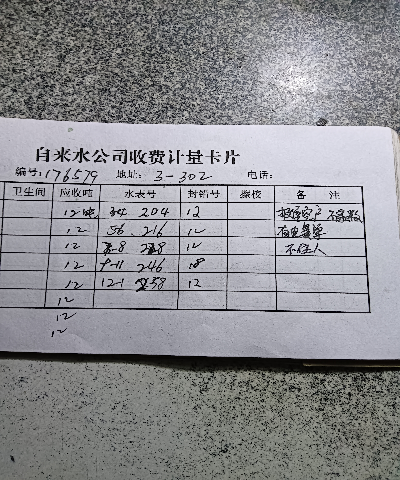 自来水公司收费计量卡片
编号:176579 地址: 3-302 电话:
卫生间 应收吨 水表号 封铅号 验核 备 注
12吨 204 12
12 56 216 12
12 -8 228 12 不住人
12 9-11 246 18
12 12-1 258 12
12
12
12